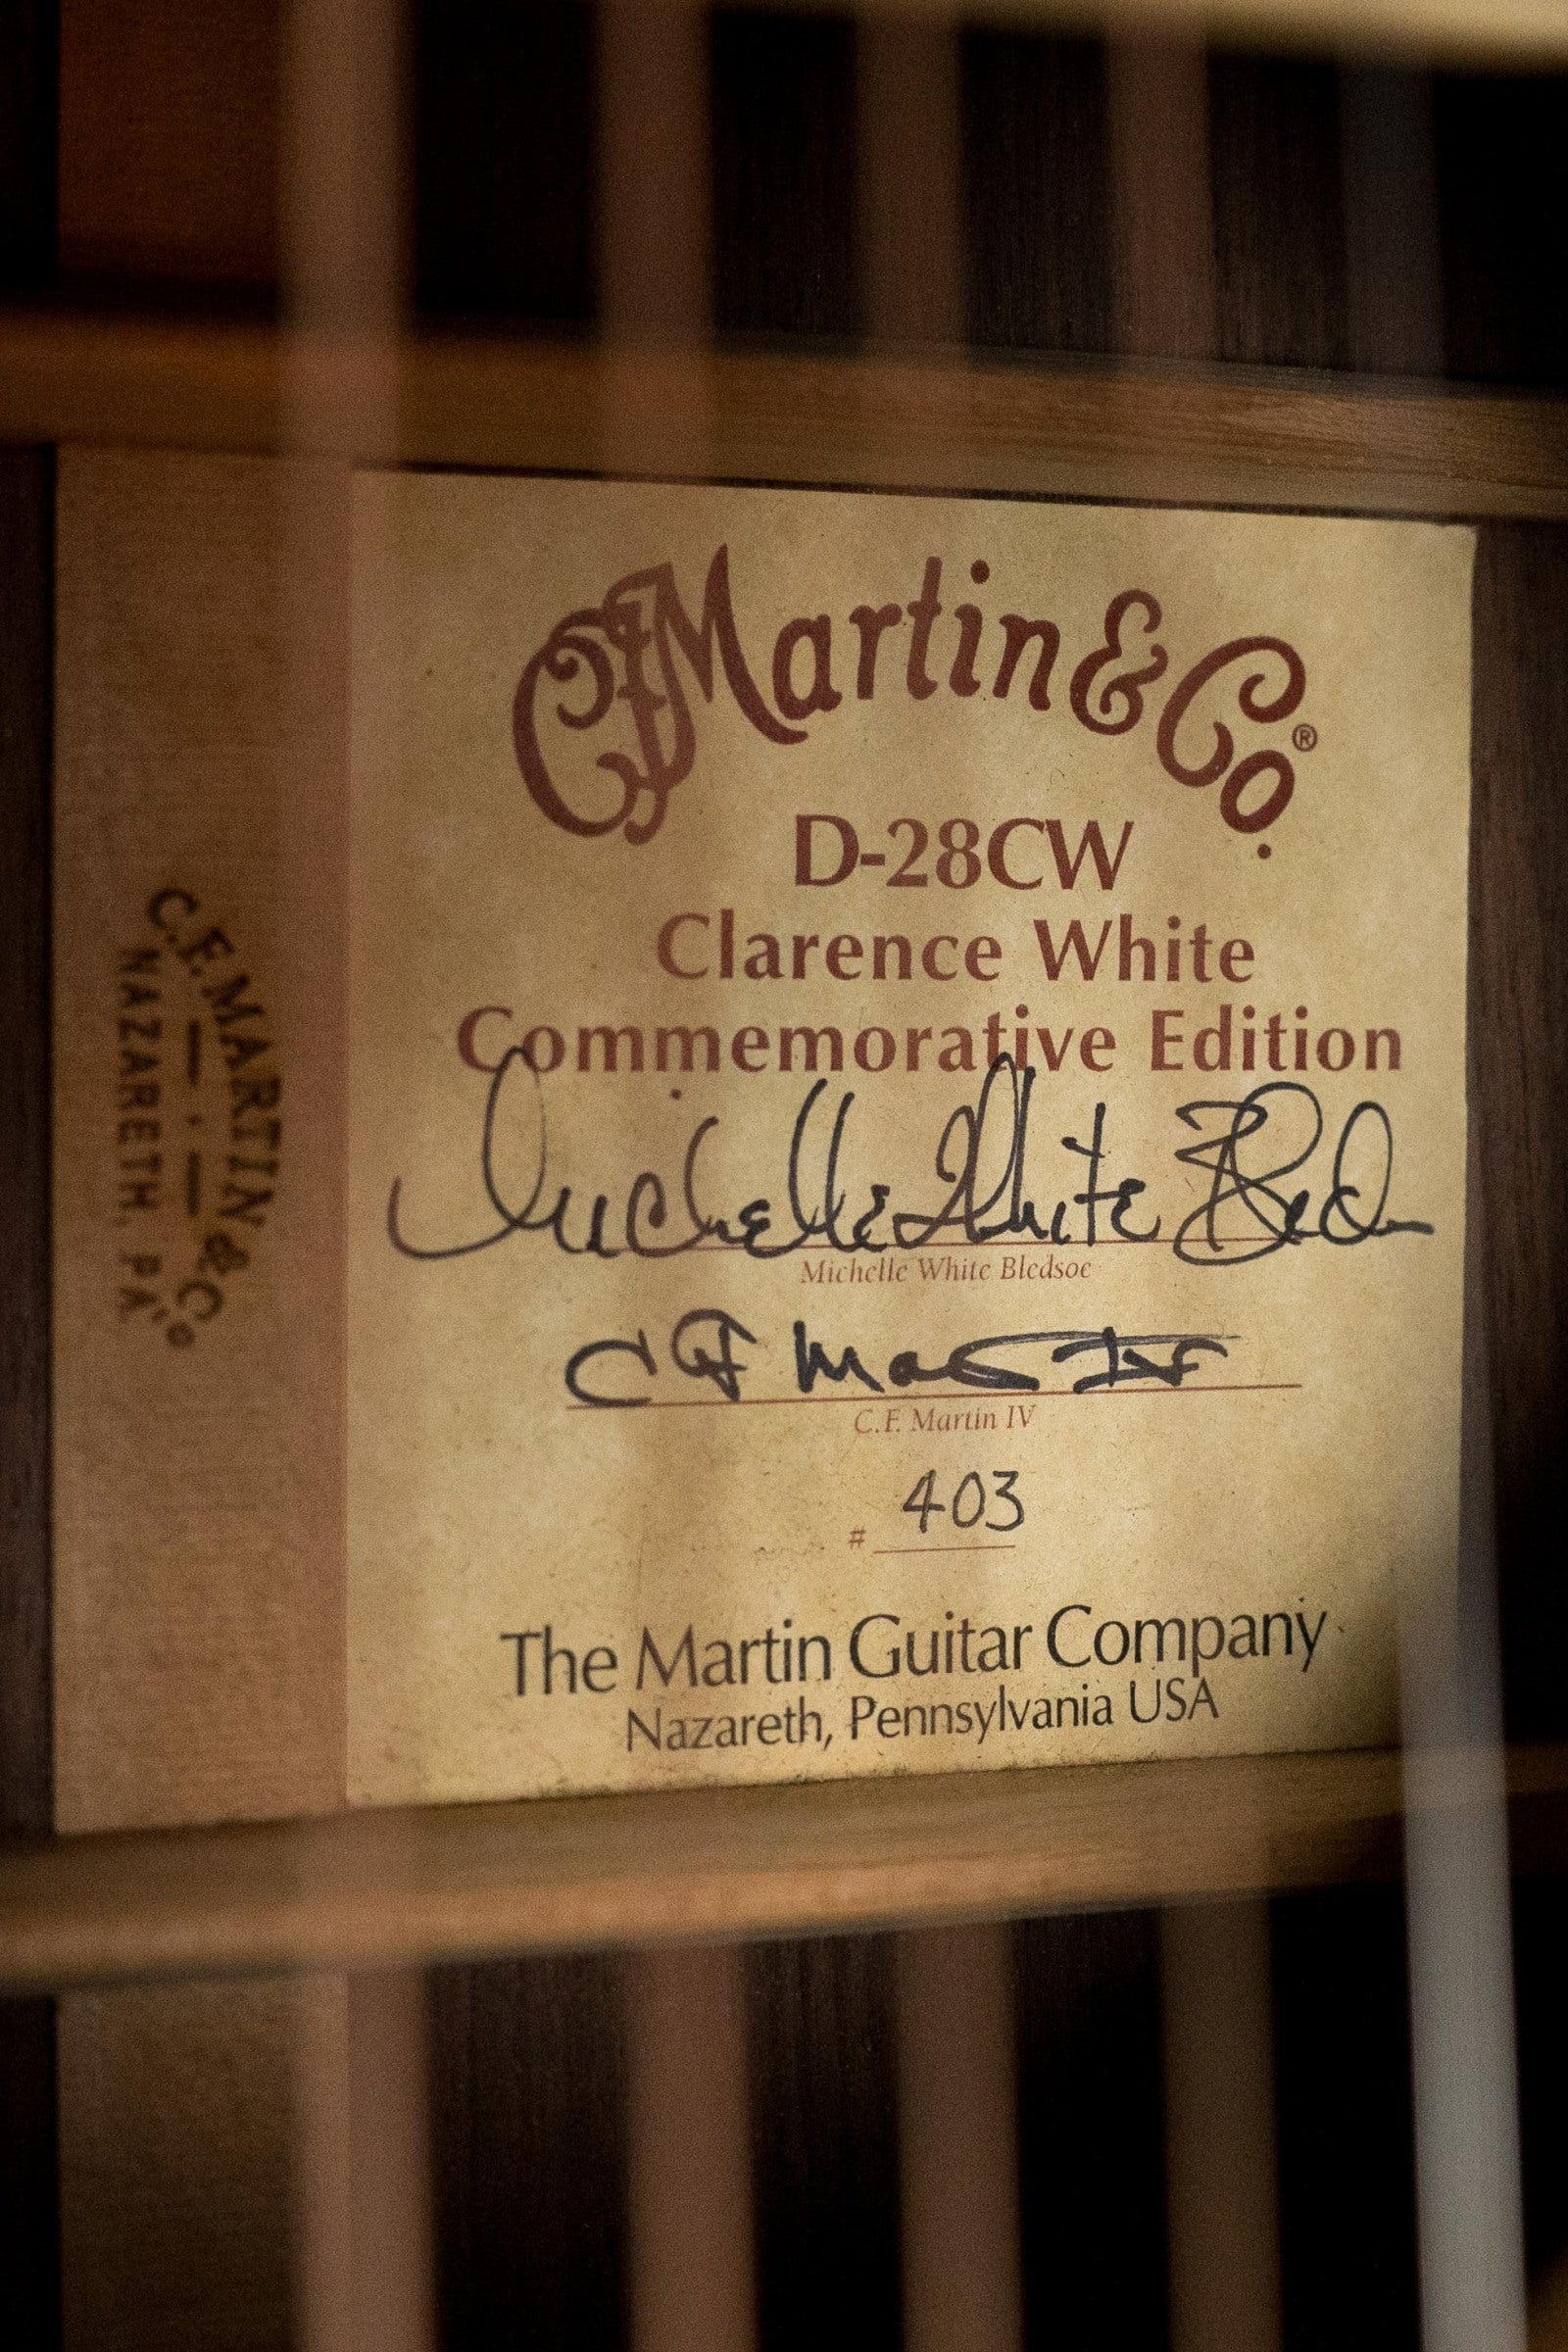 C.F. MARTIN & Co
NAZARETH, PA.
CF Martin & Co.®
D-28CW
Clarence White
Commemorative Edition
Michelle White Bledsoe
Michelle White Bledsoe
CF Martin IV
C.F. Martin IV
# 403
The Martin Guitar Company
Nazareth, Pennsylvania USA